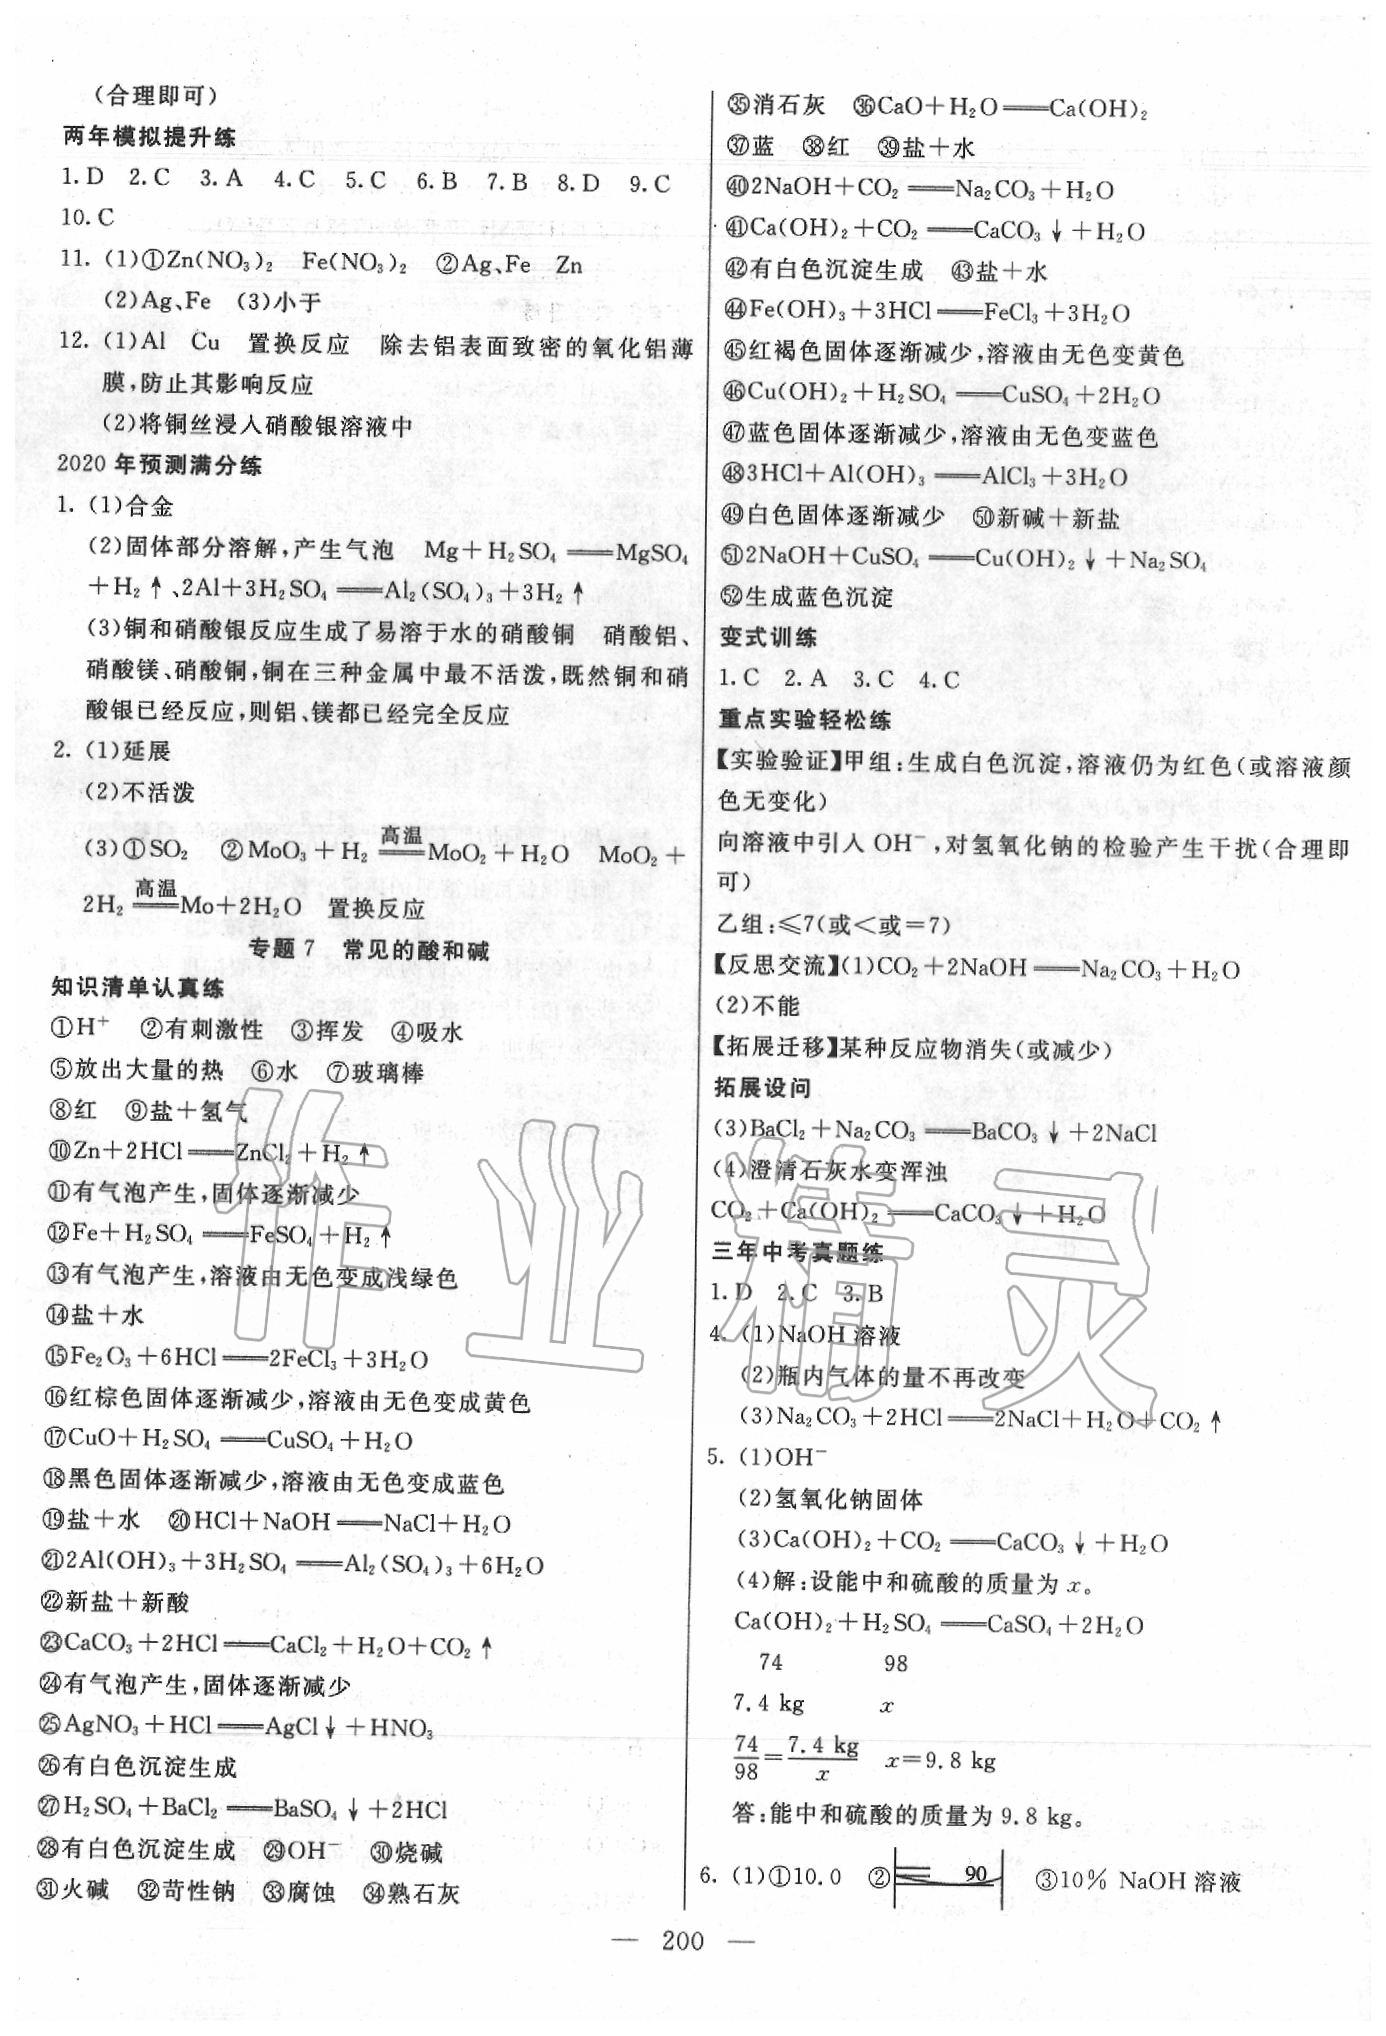 (合理即可)
两年模拟提升练
1. D 2. C 3. A 4. C 5. C 6. B 7. B 8. D 9. C
10. C
11. (1)①Zn(NO₃)₂ Fe(NO₃)₂ ②Ag、Fe Zn
(2)Ag、Fe (3)小于
12. (1)Al Cu 置换反应 除去铝表面致密的氧化铝薄
膜,防止其影响反应
(2)将铜丝浸入硝酸银溶液中
2020年预测满分练
1. (1)合金
(2)固体部分溶解,产生气泡 Mg+H₂SO₄══MgSO₄
+H₂↑、2Al+3H₂SO₄══Al₂(SO₄)₃+3H₂↑
(3)铜和硝酸银反应生成了易溶于水的硝酸铜 硝酸铝、
硝酸镁、硝酸铜,铜在三种金属中最不活泼,既然铜和硝
酸银已经反应,则铝、镁都已经完全反应
2. (1)延展
(2)不活泼
(3)①SO₂ ②MoO₃+H₂ ══高温 MoO₂+H₂O MoO₂+
2H₂ ══高温 Mo+2H₂O 置换反应
专题7 常见的酸和碱
知识清单认真练
①H⁺ ②有刺激性 ③挥发 ④吸水
⑤放出大量的热 ⑥水 ⑦玻璃棒
⑧红 ⑨盐+氢气
⑩Zn+2HCl══ZnCl₂+H₂↑
⑪有气泡产生,固体逐渐减少
⑫Fe+H₂SO₄══FeSO₄+H₂↑
⑬有气泡产生,溶液由无色变成浅绿色
⑭盐+水
⑮Fe₂O₃+6HCl══2FeCl₃+3H₂O
⑯红棕色固体逐渐减少,溶液由无色变成黄色
⑰CuO+H₂SO₄══CuSO₄+H₂O
⑱黑色固体逐渐减少,溶液由无色变成蓝色
⑲盐+水 ⑳HCl+NaOH══NaCl+H₂O
㉑2Al(OH)₃+3H₂SO₄══Al₂(SO₄)₃+6H₂O
㉒新盐+新酸
㉓CaCO₃+2HCl══CaCl₂+H₂O+CO₂↑
㉔有气泡产生,固体逐渐减少
㉕AgNO₃+HCl══AgCl↓+HNO₃
㉖有白色沉淀生成
㉗H₂SO₄+BaCl₂══BaSO₄↓+2HCl
㉘有白色沉淀生成 ㉙OH⁻ ㉚烧碱
㉛火碱 ㉜苛性钠 ㉝腐蚀 ㉞熟石灰
㉟消石灰 ㊱CaO+H₂O══Ca(OH)₂
㊲蓝 ㊳红 ㊴盐+水
㊵2NaOH+CO₂══Na₂CO₃+H₂O
㊶Ca(OH)₂+CO₂══CaCO₃↓+H₂O
㊷有白色沉淀生成 ㊸盐+水
㊹Fe(OH)₃+3HCl══FeCl₃+3H₂O
㊺红褐色固体逐渐减少,溶液由无色变黄色
㊻Cu(OH)₂+H₂SO₄══CuSO₄+2H₂O
㊼蓝色固体逐渐减少,溶液由无色变蓝色
㊽3HCl+Al(OH)₃══AlCl₃+3H₂O
㊾白色固体逐渐减少 ㊿新碱+新盐
51 2NaOH+CuSO₄══Cu(OH)₂↓+Na₂SO₄
52 生成蓝色沉淀
变式训练
1. C 2. A 3. C 4. C
重点实验轻松练
【实验验证】甲组:生成白色沉淀,溶液仍为红色(或溶液颜
色无变化)
向溶液中引入OH⁻,对氢氧化钠的检验产生干扰(合理即
可)
乙组:≤7(或<或=7)
【反思交流】(1)CO₂+2NaOH══Na₂CO₃+H₂O
(2)不能
【拓展迁移】某种反应物消失(或减少)
拓展设问
(3)BaCl₂+Na₂CO₃══BaCO₃↓+2NaCl
(4)澄清石灰水变浑浊
CO₂+Ca(OH)₂══CaCO₃↓+H₂O
三年中考真题练
1. D 2. C 3. B
4. (1)NaOH溶液
(2)瓶内气体的量不再改变
(3)Na₂CO₃+2HCl══2NaCl+H₂O+CO₂↑
5. (1)OH⁻
(2)氢氧化钠固体
(3)Ca(OH)₂+CO₂══CaCO₃↓+H₂O
(4)解:设能中和硫酸的质量为x。
Ca(OH)₂+H₂SO₄══CaSO₄+2H₂O
74 98
7.4 kg x
74/98=7.4 kg/x x=9.8 kg
答:能中和硫酸的质量为9.8 kg。
6. (1)①10.0 ② 90 ③10% NaOH溶液
— 200 —
作业精灵